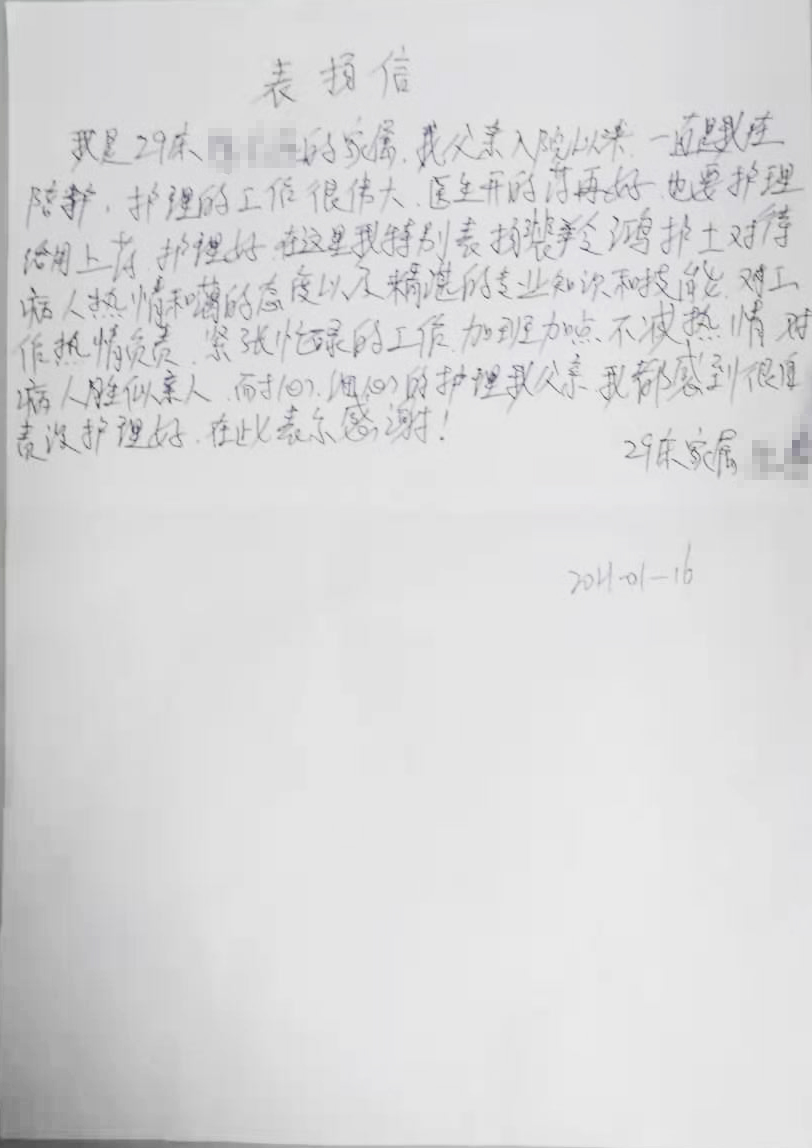 表扬信
我是29床的家属,我父亲入院以来,一直是我在
陪护,护理的工作很伟大,医生开的药再好,也要护理
给用上药,护理好,在这里我特别表扬裴羚鸿护士对待
病人热情和蔼的态度以及精湛的专业知识和技能,对工
作热情负责,紧张忙碌的工作,加班加点,不减热情,对
病人胜似亲人,耐心,细心的护理我父亲,我都感到很自
责没护理好,在此表示感谢!
29床家属
2021-01-16